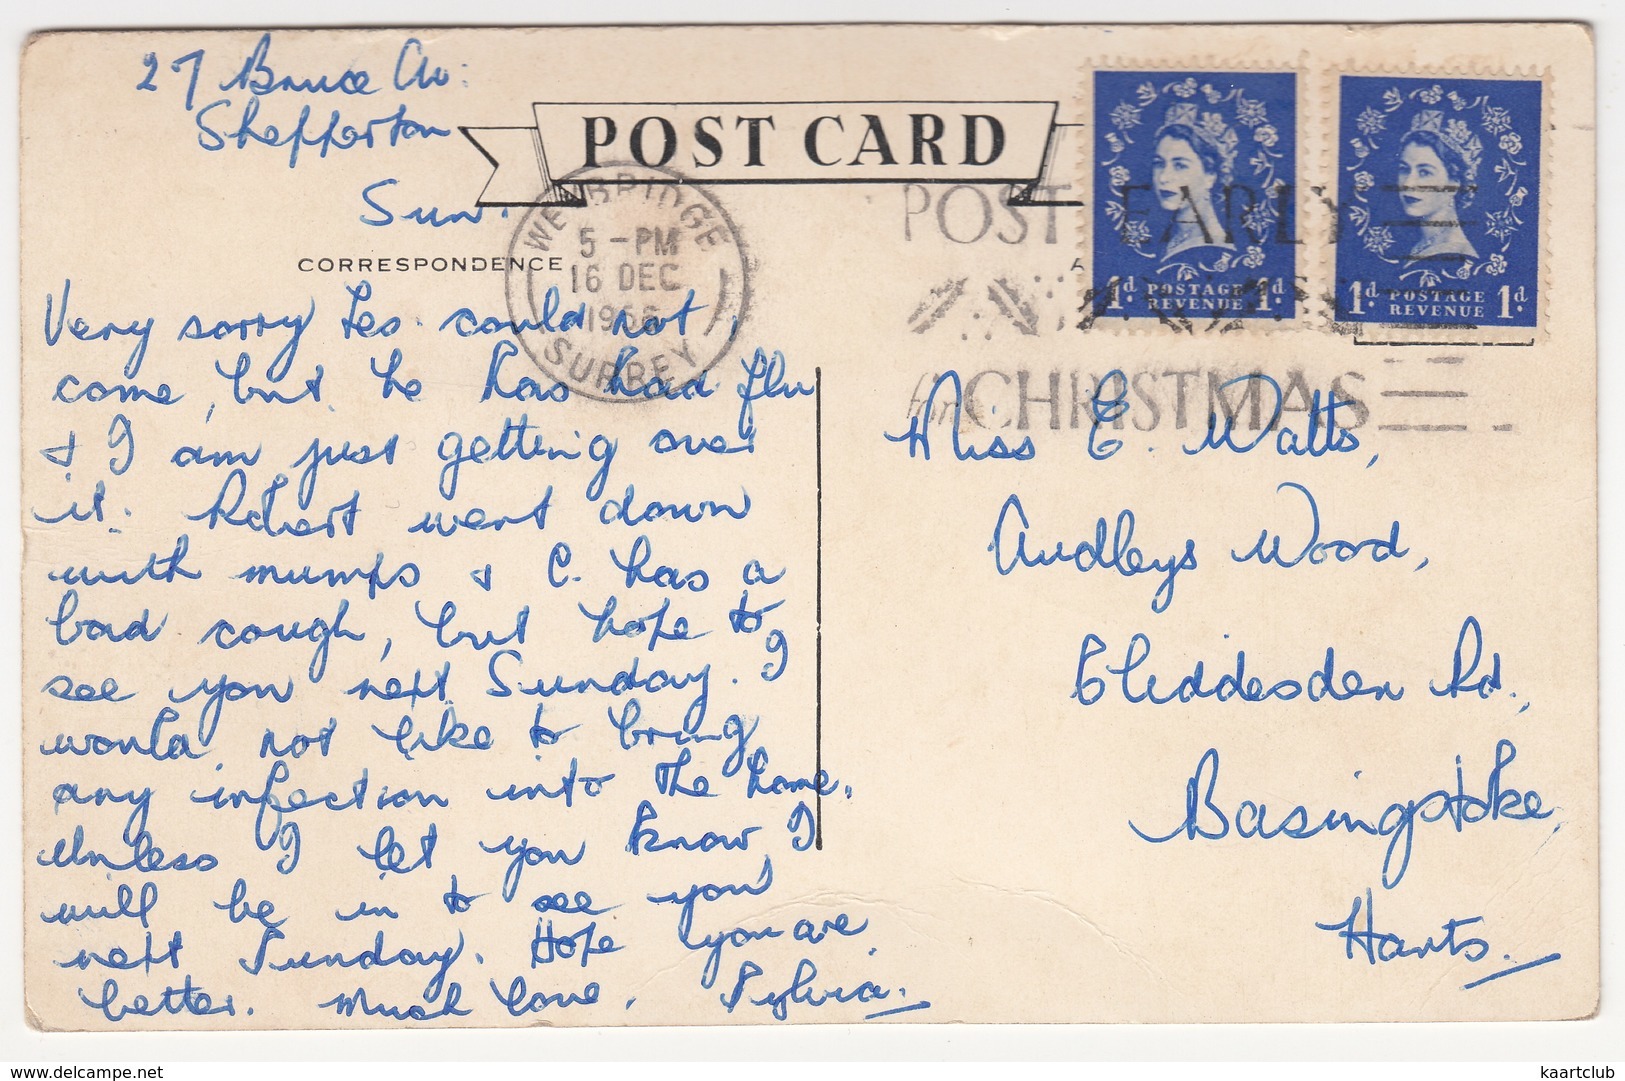 27 Bruce Av:
Shepperton
Sun.
POST CARD
WEYBRIDGE
5-PM
16 DEC
SURREY
POST EARLY
for CHRISTMAS
1d POSTAGE REVENUE 1d
1d POSTAGE REVENUE 1d
CORRESPONDENCE
Very sorry Les could not
come, but he has had flu
& I am just getting over
it. Robert went down
with mumps & C. has a
bad cough, but hope to
see you next Sunday. I
would not like to bring
any infection into the home.
Unless I let you know, I
will be in to see you
next Sunday. Hope you are
better. Much love, Sylvia.
Miss E. Watts,
Audleys Wood,
Cliddesden Rd.,
Basingstoke,
Hants.
kaartclub